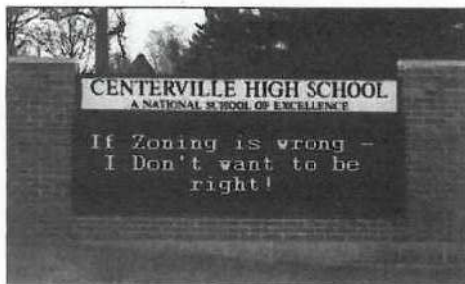 CENTERVILLE HIGH SCHOOL
A NATIONAL SCHOOL OF EXCELLENCE
If Zoning is wrong -
I Don't want to be
right!